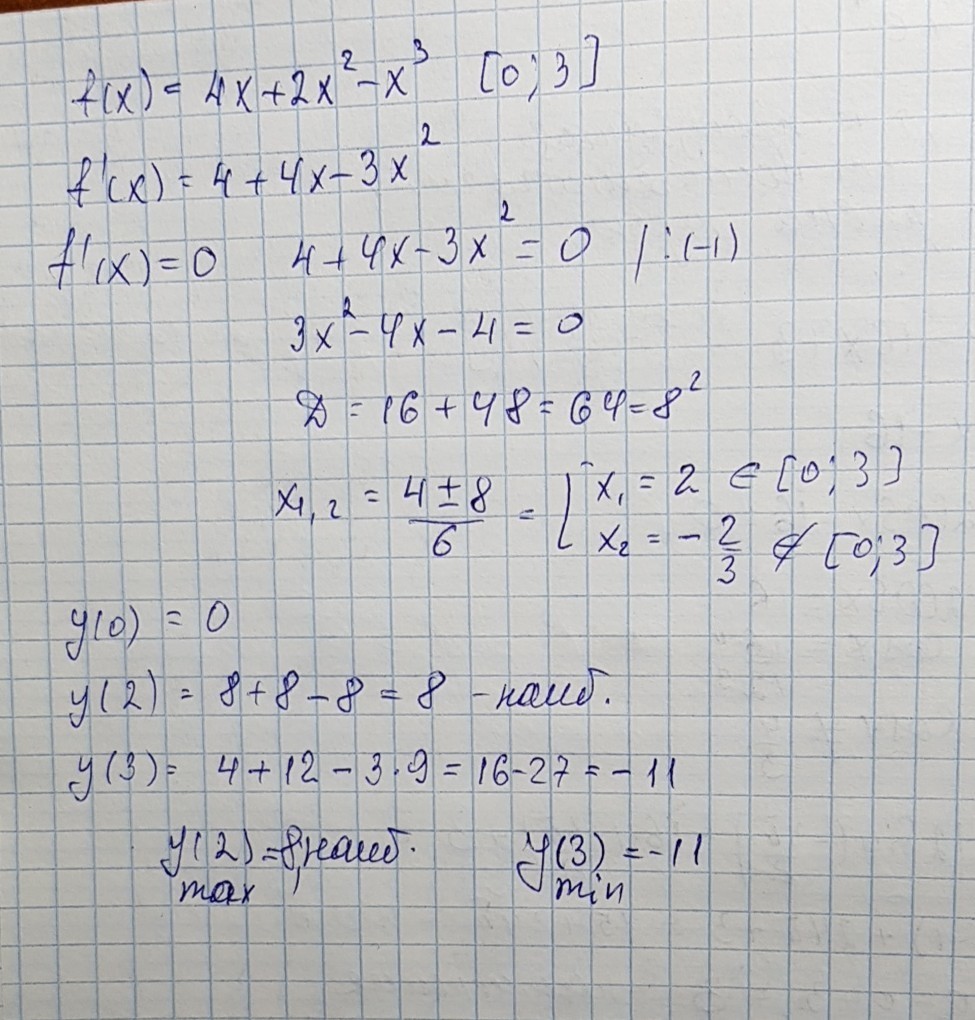 f(x) = 4x+2x²-x³ [0; 3]
f'(x) = 4+4x-3x²
f'(x)=0 4+4x-3x² = 0 /:(-1)
3x²-4x-4=0
D = 16+48=64=8²
x₁,₂ = (4±8)/6 = [ x₁ = 2 ∈ [0; 3]
x₂ = -2/3 ∉ [0;3]
y(0) = 0
y(2) = 8+8-8=8 - наиб.
y(3)= 4+12-3·9=16-27=-11
y(2)=8, наиб. y(3) =-11
max min